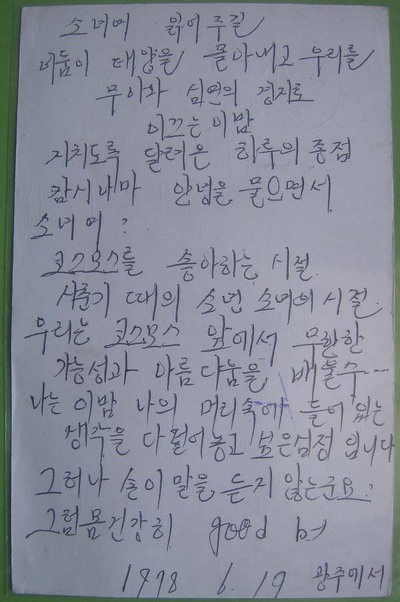 소녀여 읽어주길
어둠이 태양을 몰아내고 우리를
무아와 심연의 경지로
이끄는 이밤
지치도록 달려온 하루의 종점
잠시나마 안녕을 물으면서
소녀여?
코스모스를 좋아하는 시절
사춘기 때의 소년 소녀의 시절
우리는 코스모스 앞에서 무한한
가능성과 아름다움을 배울수…
나는 이밤 나의 머리속에 들어 있는
생각을 다 털어놓고 싶은심정 입니다
그러나 손이 말을 듣지 않는군요?
그럼 몸건강히 good
1978 6. 19 광주에서